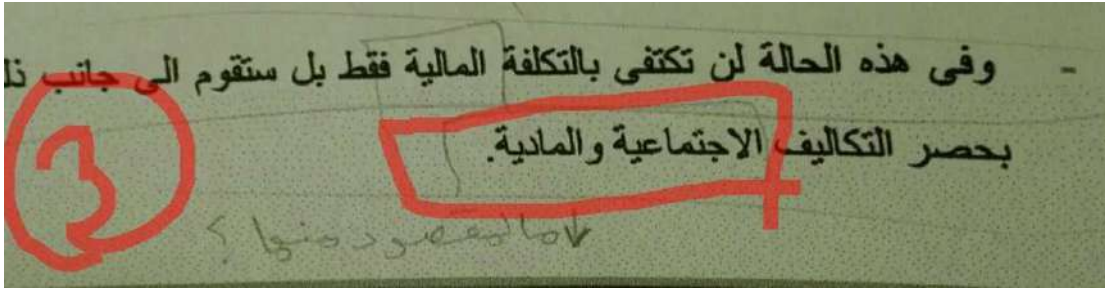 - وفى هذه الحالة لن تكتفى بالتكلفة المالية فقط بل ستقوم الى جانب
بحصر التكاليف الاجتماعية والمادية.
3
ما المقصود منها ؟